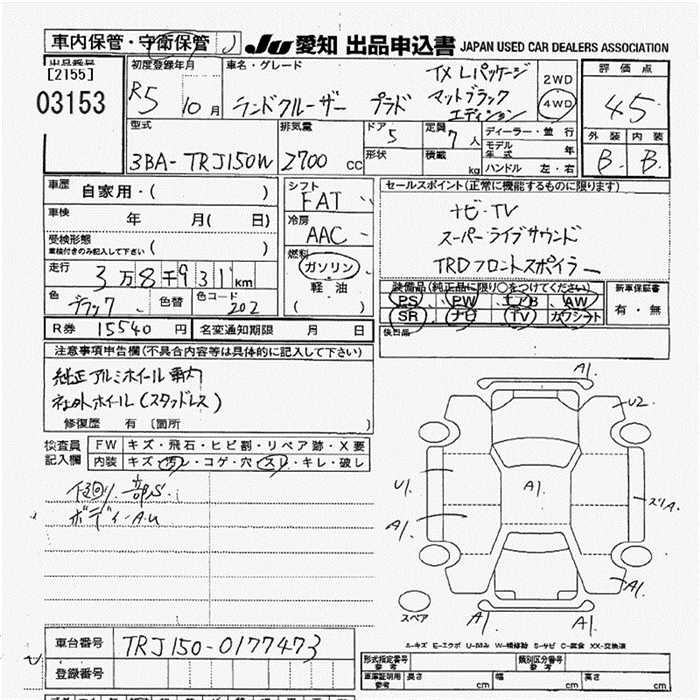 車内保管・守衛保管 JU 愛知 出品申込書 JAPAN USED CAR DEALERS ASSOCIATION
出品番号
[2155]
03153
初度登録年月
R5 10 月
車名・グレード
ランドクルーザー プラド
TX Lパッケージ
マットブラック
エディション
2WD
4WD
評価点
4.5
外装 内装
B. B.
型式
3BA-TRJ150W
排気量
2700 cc
ドア
5
形状
定員
7 人
積載
kg
ディーラー・並行
モデル年式 年
ハンドル 左・右
車歴 自家用・( )
車検 年 月( 日)
受検形態
車検付きのみ記入して下さい ( )
走行 3万8千931km
色 ブラック 色替 色コード 202
シフト
FAT
冷房
AAC
燃料
ガソリン
軽油
( )
セールスポイント(正常に機能するものに限ります)
ナビ・TV
スーパーライブサウンド
TRDフロントスポイラー
装備品(純正品に限り○をつけてください)
PS PW エアB AW
SR ナビ TV カワシート
後日品
新車保証書
有・無
R券 15540 円 名変通知期限 月 日
注意事項申告欄(不具合内容等は具体的に記入して下さい)
純正アルミホイール
社外ホイール(スタッドレス)
修復歴 有 〔箇所 〕
検査員
記入欄
FW キズ・飛石・ヒビ割・リペア跡・X要
内装 キズ・汚レ・コゲ・穴・スレ・キレ・破レ
下廻り一部S.
ボディーA.U
A1.
U2
U1.
A1.
A1.
スリA.
A1.
A1.
A1.
スペア
A-キズ E-エクボ U-凹み W-補修跡 S-サビ C-腐食 XX-交換済
車台番号 TRJ150-0177473
登録番号
形式指定番号
参考
類別区分番号
参考
車庫証明用
参考
長さ cm 幅 cm 高さ cm